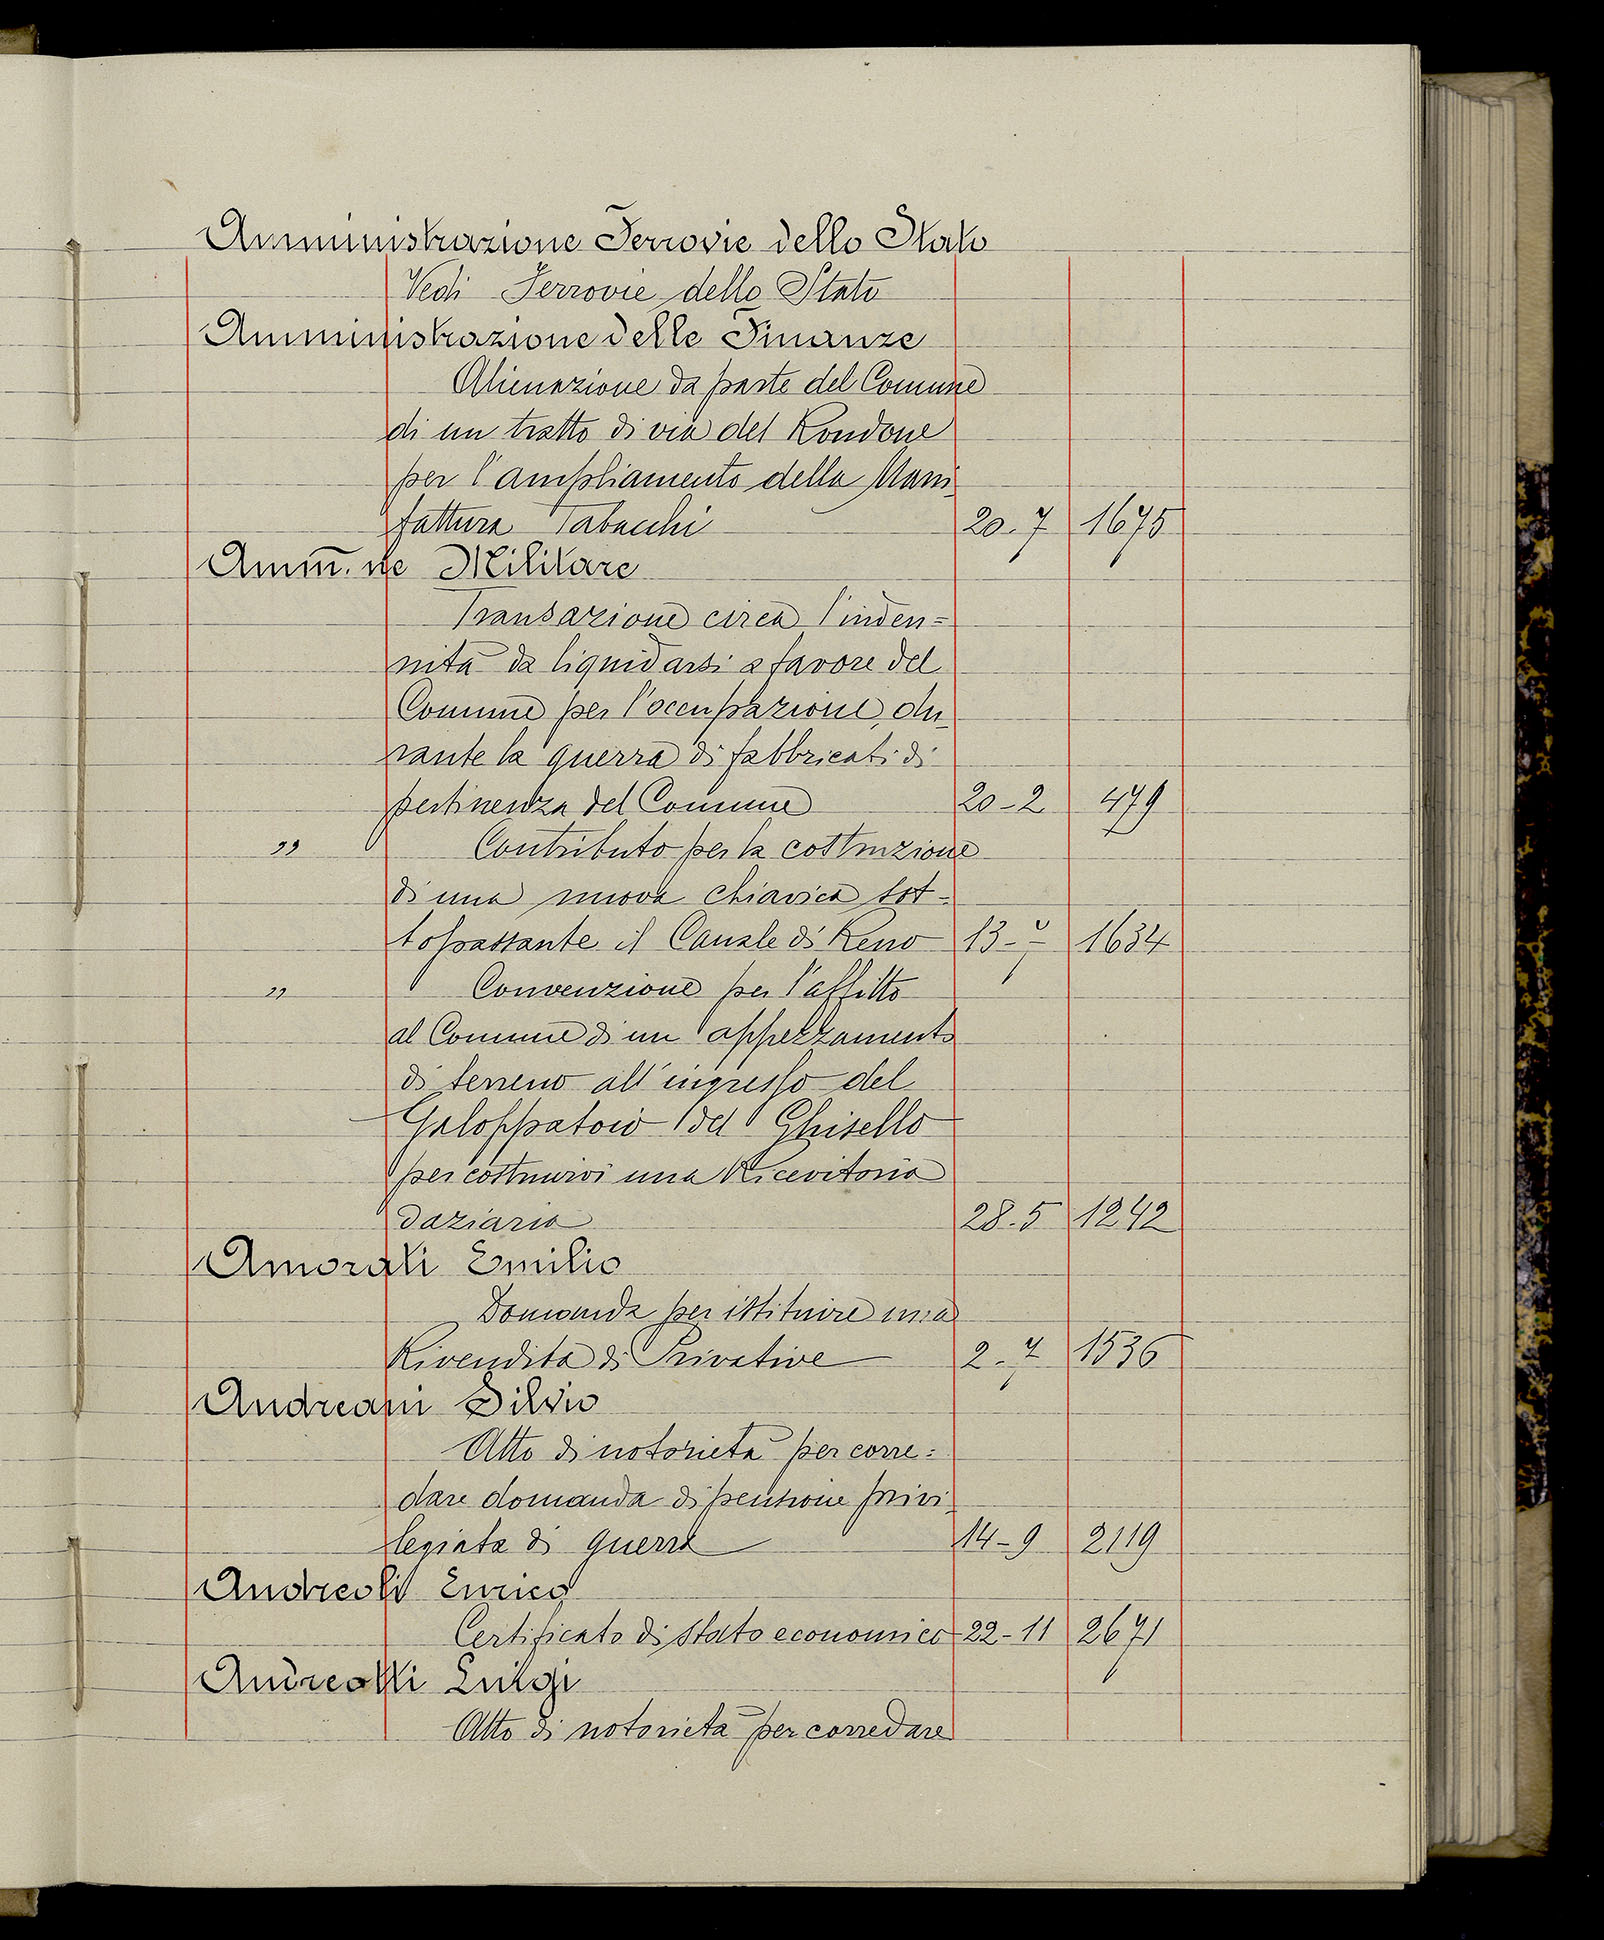 Amministrazione Ferrovie dello Stato
Vedi Ferrovie dello Stato
Amministrazione delle Finanze
Alienazione da parte del Comune
di un tratto di via del Rondone
per l'ampliamento della Mani_
fattura Tabacchi 20-7 1675
Amm̅.ne Militare
Transazione circa l'inden=
nità da liquidarsi a favore del
Comune per l'occupazione, du_
rante la guerra di fabbricati di
pertinenza del Comune 20-2 479
" Contributo per la costruzione
di una nuova chiavica sot-
topassante il Canale di Reno 13-7 1634
" Convenzione per l'affitto
al Comune di un appezzamento
di terreno all'ingresso del
Galoppatoio del Ghisello
per costruirvi una Ricevitoria
daziaria 28-5 1242
Amorati Emilio
Domanda per istituire una
Rivendita di Privative 2-7 1536
Andreani Silvio
Atto di notorietà per corre=
dare domanda di pensione privi_
legiata di guerra 14-9 2119
Andreoli Enrico
Certificato di stato economico 22-11 2671
Andreotti Luigi
Atto di notorietà per corredare